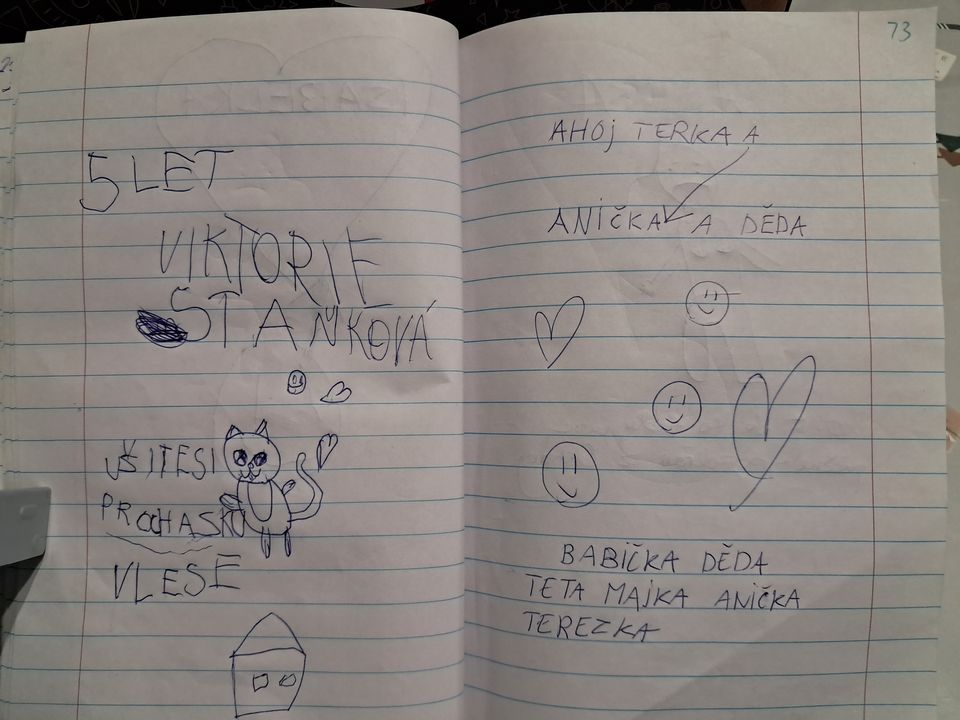 5 LET
VIKTORIE
STAŇKOVÁ
UŠITESI
PROCHASKU
VLESE
73
AHOJ TERKA A
ANIČKA A DĚDA
BABIČKA DĚDA
TETA MAJKA ANIČKA
TEREZKA